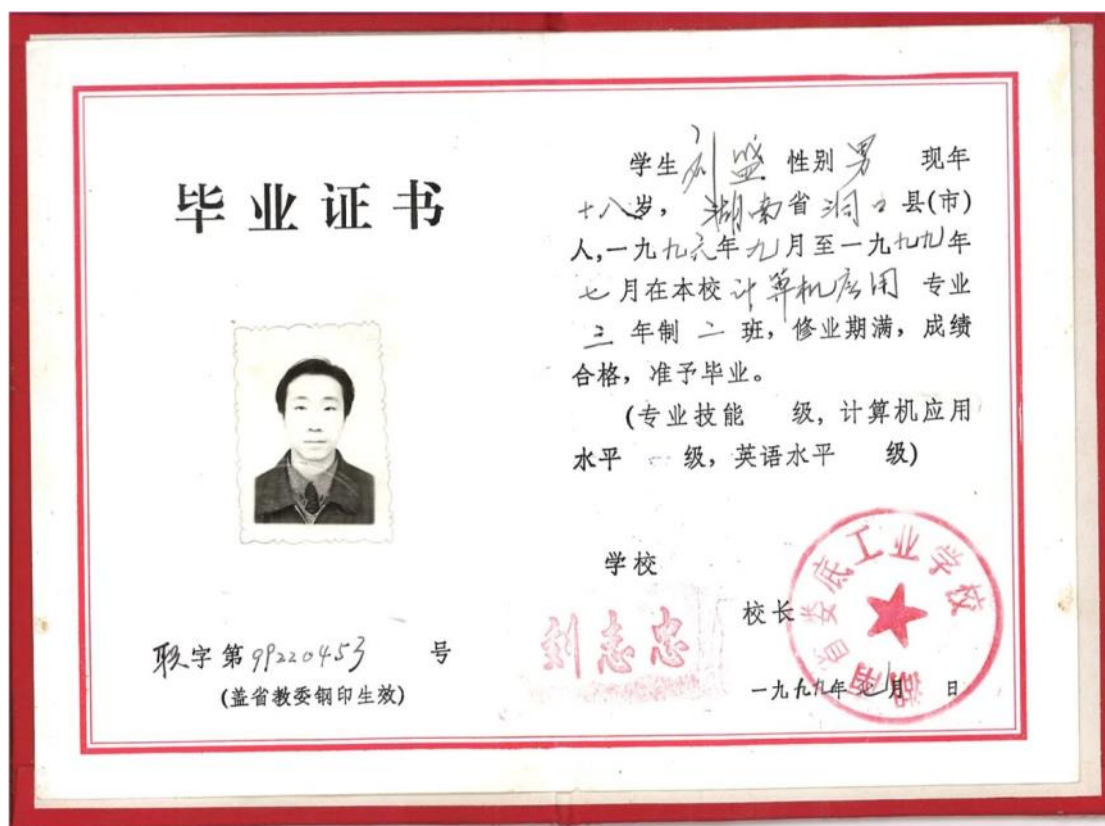 毕业证书
职字第99220453号
(盖省教委钢印生效)
学生刘盛 性别男 现年
十八岁，湖南省洞口县(市)
人,一九九六年九月至一九九九年
七月在本校计算机应用专业
三年制二班，修业期满，成绩
合格，准予毕业。
(专业技能 级，计算机应用
水平一级，英语水平 级)
学校
校长
刘志忠
湖南省娄底工业学校
一九九九年七月 日